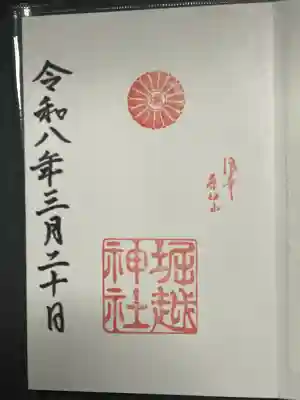 堀越
神社
令和八年三月二十日